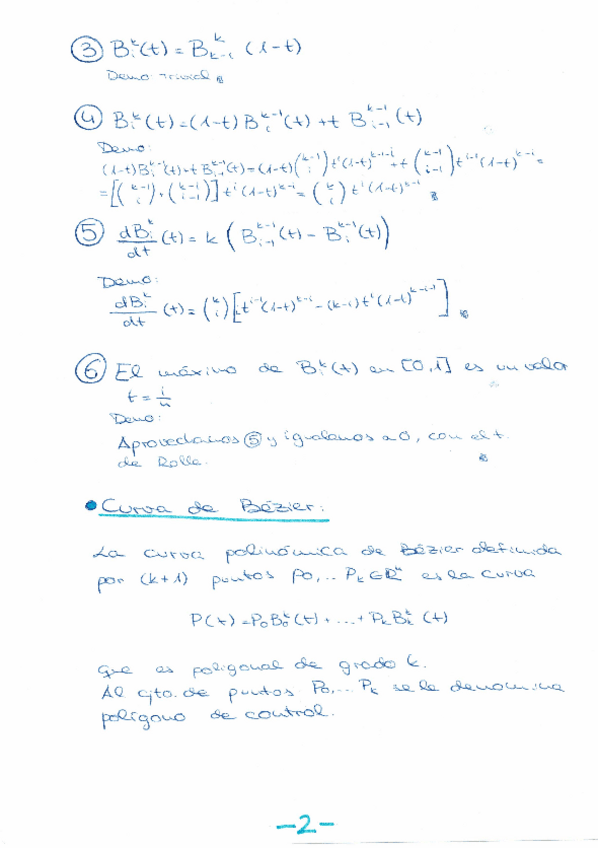 ③ Bᵢᵏ(t) = Bₖ₋ᵢᵏ (1-t)
Demo: trivial
④ Bᵢᵏ(t) = (1-t) Bᵢᵏ⁻¹(t) + t Bᵢ₋₁ᵏ⁻¹(t)
Demo:
(1-t)Bᵢᵏ⁻¹(t) + t Bᵢ₋₁ᵏ⁻¹(t) = (1-t) (k-1 i) tⁱ (1-t)ᵏ⁻¹⁻ⁱ + t (k-1 i-1) tⁱ⁻¹ (1-t)ᵏ⁻ⁱ =
= [(k-1 i) + (k-1 i-1)] tⁱ (1-t)ᵏ⁻ⁱ = (k i) tⁱ (1-t)ᵏ⁻ⁱ
⑤ dBᵢᵏ/dt (t) = k (Bᵢ₋₁ᵏ⁻¹(t) - Bᵢᵏ⁻¹(t))
Demo:
dBᵢᵏ/dt (t) = (k i) [i tⁱ⁻¹ (1-t)ᵏ⁻ⁱ - (k-i) tⁱ (1-t)ᵏ⁻ⁱ⁻¹]
⑥ El máximo de Bᵢᵏ(t) en [0,1] es un valor
t = i/n
Demo:
Aprovechamos ⑤ y igualamos a 0, con el t.
de Rolle.
• Curva de Bézier:
La curva polinómica de Bézier definida
por (k+1) puntos P₀,... Pₖ∈ℝⁿ es la curva
P(t) = P₀B₀ᵏ(t) + ... + PₖBₖᵏ (t)
que es poligonal de grado k.
Al cjto. de puntos P₀,... Pₖ se le denomina
polígono de control.
-2-